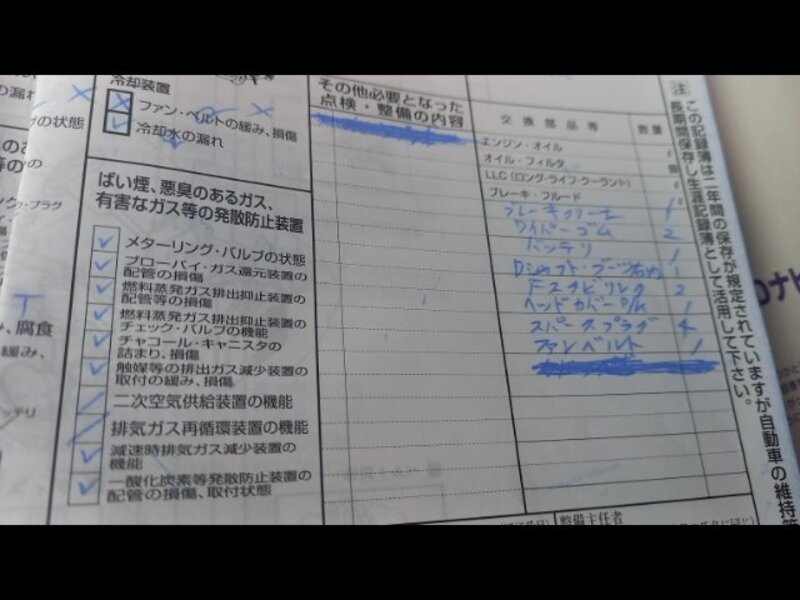 冷却装置
ファン・ベルトの緩み、損傷
冷却水の漏れ
の漏れ
の状態
ばい煙、悪臭のあるガス、
有害なガス等の発散防止装置
メターリング・バルブの状態
ブローバイ・ガス還元装置の
配管の損傷
燃料蒸発ガス排出抑止装置の
配管等の損傷
燃料蒸発ガス排出抑止装置の
チェック・バルブの機能
チャコール・キャニスタの
詰まり、損傷
触媒等の排出ガス減少装置の
取付の緩み、損傷
二次空気供給装置の機能
排気ガス再循環装置の機能
減速時排気ガス減少装置の
機能
一酸化炭素等発散防止装置の
配管の損傷、取付状態
、腐食
緩み、
その他必要となった
点検・整備の内容
交換部品等 数量
エンジン・オイル
オイル・フィルタ
LLC(ロング・ライフ・クーラント)
ブレーキ・フルード
ブレーキクリーナ 1
ワイパーゴム 2
バッテリ 1
Dシャフト・ブーツ右内 1
Fスタビリンク 2
ヘッドカバーP/K 1
スパークプラグ 4
ファンベルト 1
整備主任者
注 この記録簿は二年間の保存が規定されていますが自動車の維持等
長期間保存し生涯記録簿として活用して下さい。
ナビ